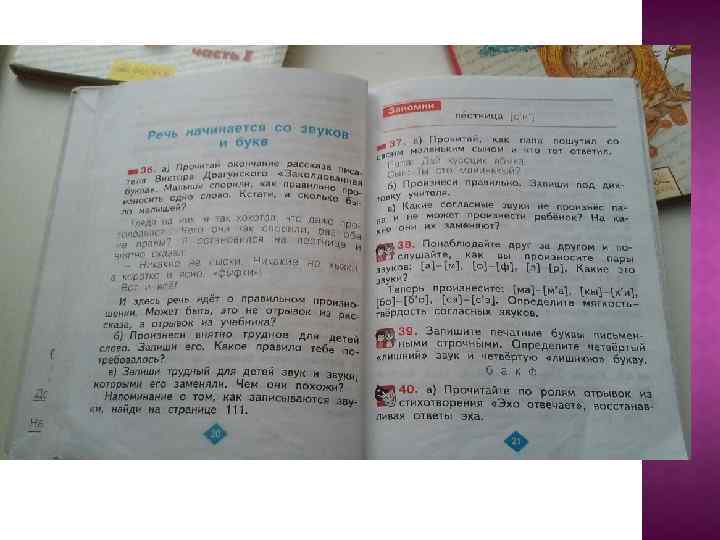 часть I
Речь начинается со звуков
и букв
36. а) Прочитай окончание рассказа писа-
теля Виктора Драгунского «Заколдованная
буква». Малыши спорили, как правильно про-
износить одно слово. Кстати, и сколько бы-
ло малышей?
Глядя на них, я так хохотал, что даже про-
голодался.
не правы? Я остановился на лестнице и
внятно сказал:
– Никакие не сыски. Никакие не хыхки,
а коротко и ясно: «фыфки»!
Вот и всё!
И здесь речь идёт о правильном произно-
шении. Может быть, это не отрывок из рас-
сказа, а отрывок из учебника?
б) Произнеси внятно трудное для детей
слово. Запиши его. Какое правило тебе по-
требовалось?
в) Запиши трудный для детей звук и звуки,
которыми его заменяли. Чем они похожи?
Напоминание о том, как записываются зву-
ки, найди на странице 111.
20
Запомни
лестница [с'н']
37. а) Прочитай, как папа пошутил со
своим маленьким сыном и что тот ответил.
Папа: Дай кусоцик яблка.
Сын: Ты сто маинький?
б) Произнеси правильно. Запиши под дик-
товку учителя.
в) Какие согласные звуки не произнёс па-
па и не может произнести ребёнок? На ка-
кие они их заменяют?
38. Понаблюдайте друг за другом и по-
слушайте, как вы произносите пары
звуков: [а]–[м], [о]–[ф], [э]–[р]. Какие это
звуки?
Теперь произнесите: [ма]–[м'а], [кы]–[к'и],
[бо]–[б'о], [сэ]–[с'э]. Определите мягкость-
твёрдость согласных звуков.
39. Запишите печатные буквы письмен-
ными строчными. Определите четвёртый
«лишний» звук и четвёртую «лишнюю» букву.
б а к ф
40. а) Прочитайте по ролям отрывок из
стихотворения «Эхо отвечает», восстанав-
ливая ответы эха.
21